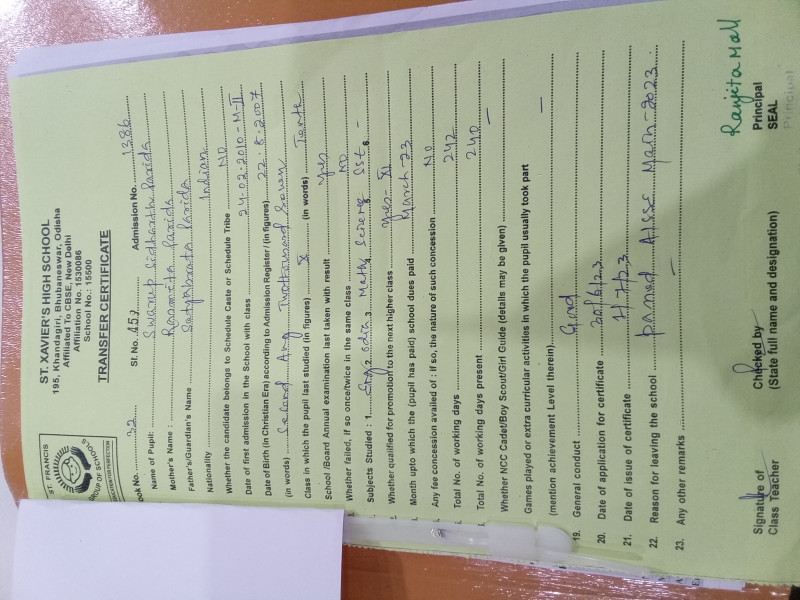 ST. FRANCIS
GROUP OF SCHOOLS
ST. XAVIER'S HIGH SCHOOL
195, Khandagiri, Bhubaneswar, Odisha
Affiliated To CBSE, New Delhi
Affiliation No. 1530086
School No.: 15600
TRANSFER CERTIFICATE
ook No. 32 Sl. No. 157 Admission No. 1386
Name of Pupil: Swarup Sidharth Parida
Mother's Name : Rasmita Parida
Father's/Guardian's Name Satyabrata Parida
Nationality Indian
Whether the candidate belongs to Schedule Caste or Schedule Tribe NO
Date of first admission in the School with class 24-02-2010-M-II
Date of Birth (in Christian Era) according to Admission Register / (in figures) 22.8.2007
(in words) Second Aug Twothousand Seven
Class in which the pupil last studied (in figures) X (in words) Tenth
School /Board Annual examination last taken with result yes
Whether failed, if so once/twice in the same class NO
Subjects Studied : 1. Eng 2. Odia 3. Math 4. Science 5. SSt. 6. -
Whether qualified for promotion to the next higher class yes - XI
Month upto which the (pupil has paid) school dues paid March-23
Any fee concession availed of : if so, the nature of such concession No
Total No. of working days 242
Total No. of working days present 240
Whether NCC Cadet/Boy Scout/Girl Guide (details may be given) —
Games played or extra curricular activities in which the pupil usually took part
(mention achievement Level therein) —
19. General conduct Good
20. Date of application for certificate 30/6/23
21. Date of issue of certificate 1/7/23
22. Reason for leaving the school passed AISSE March-2023
23. Any other remarks —
Signature of
Class Teacher
Checked by
(State full name and designation)
Ranjita Mall
Principal
SEAL
Principal